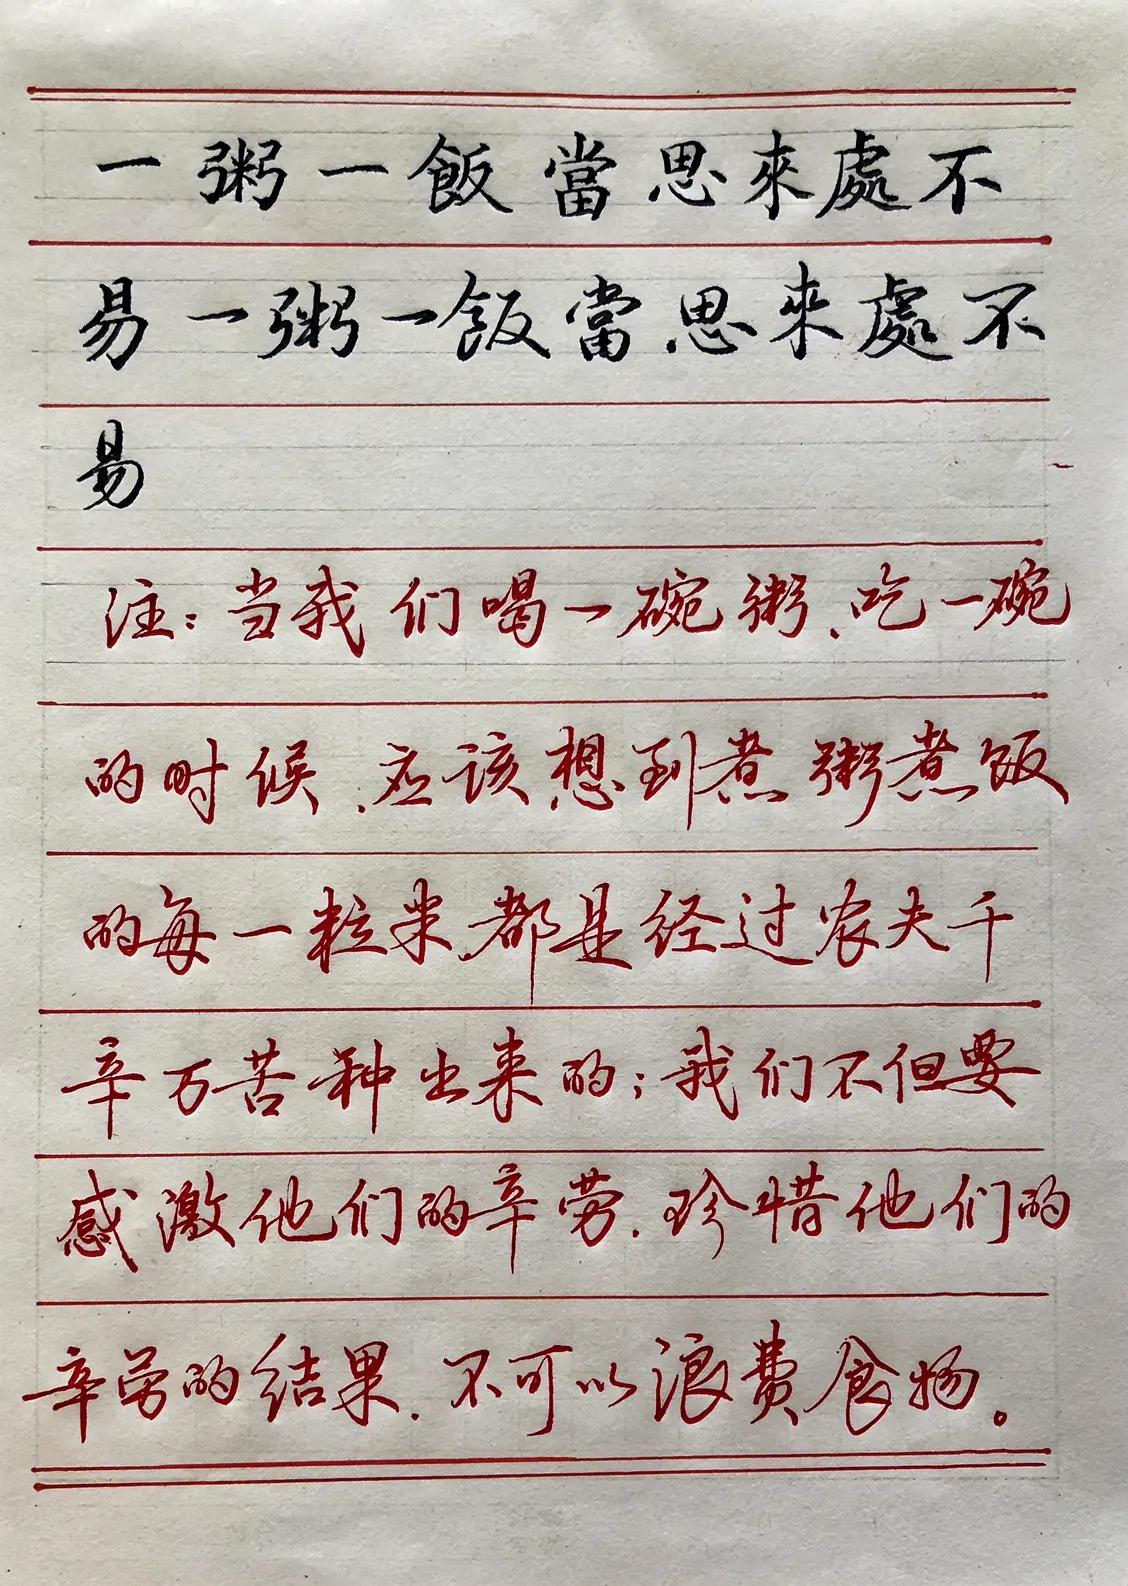 一粥一飯當思來處不
易一粥一飯當思來處不
易
注:当我们喝一碗粥、吃一碗
的时候、应该想到煮粥煮饭
的每一粒米都是经过农夫千
辛万苦种出来的;我们不但要
感激他们的辛劳、珍惜他们的
辛劳的结果、不可以浪费食物。